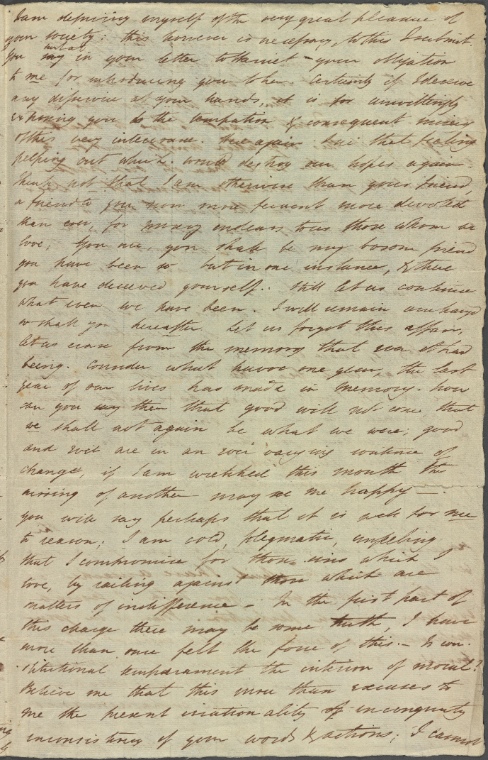 I am depriving myself of the very great pleasure of
your society; this however is necessary, to this I submit
You say in your letter to Harriet – your obligation
to me for introducing you to her. Certainly I deserve
any displeasure at your hands, it is for unwittingly
exposing you to the temptation & consequent misery
of this very intercourse. Here again lives that feeling
ripping out which would destroy our hopes again
Think not that I am otherwise than your friend
a friend to you now more fervent more devoted
than ever, for misery endears to us those whom we
love; You are, you shall be my bosom friend
you have been so but in one instance, & there
you have deceived yourself. Still let us continue
what even we have been. I will remain unchanged
so shall you hereafter let us forget this affair,
let us erase from the memory that ever it had
being. Consider what havoc one year, the last
year of our lives has made in memory how
can you say then that good will not come, that
we shall not again be what we were; good
and evil are in an ever varying routine of
change, if I am wretched this month the
arising of another may see me happy –.
you will say perhaps that it is well for me
to reason; I am cold, phlegmatic, unfeeling
that I compromise for those sins which I
love, by railing against those which are
matters of indifference – In the first part of
this charge there may be some truth, I have
more than once felt the force of this. – Is con-
stitutional temperament the criterion of morals?
Believe me that this more than excuses to
me the present irrationality of incongruity
inconsistency of your words & actions; I cannot